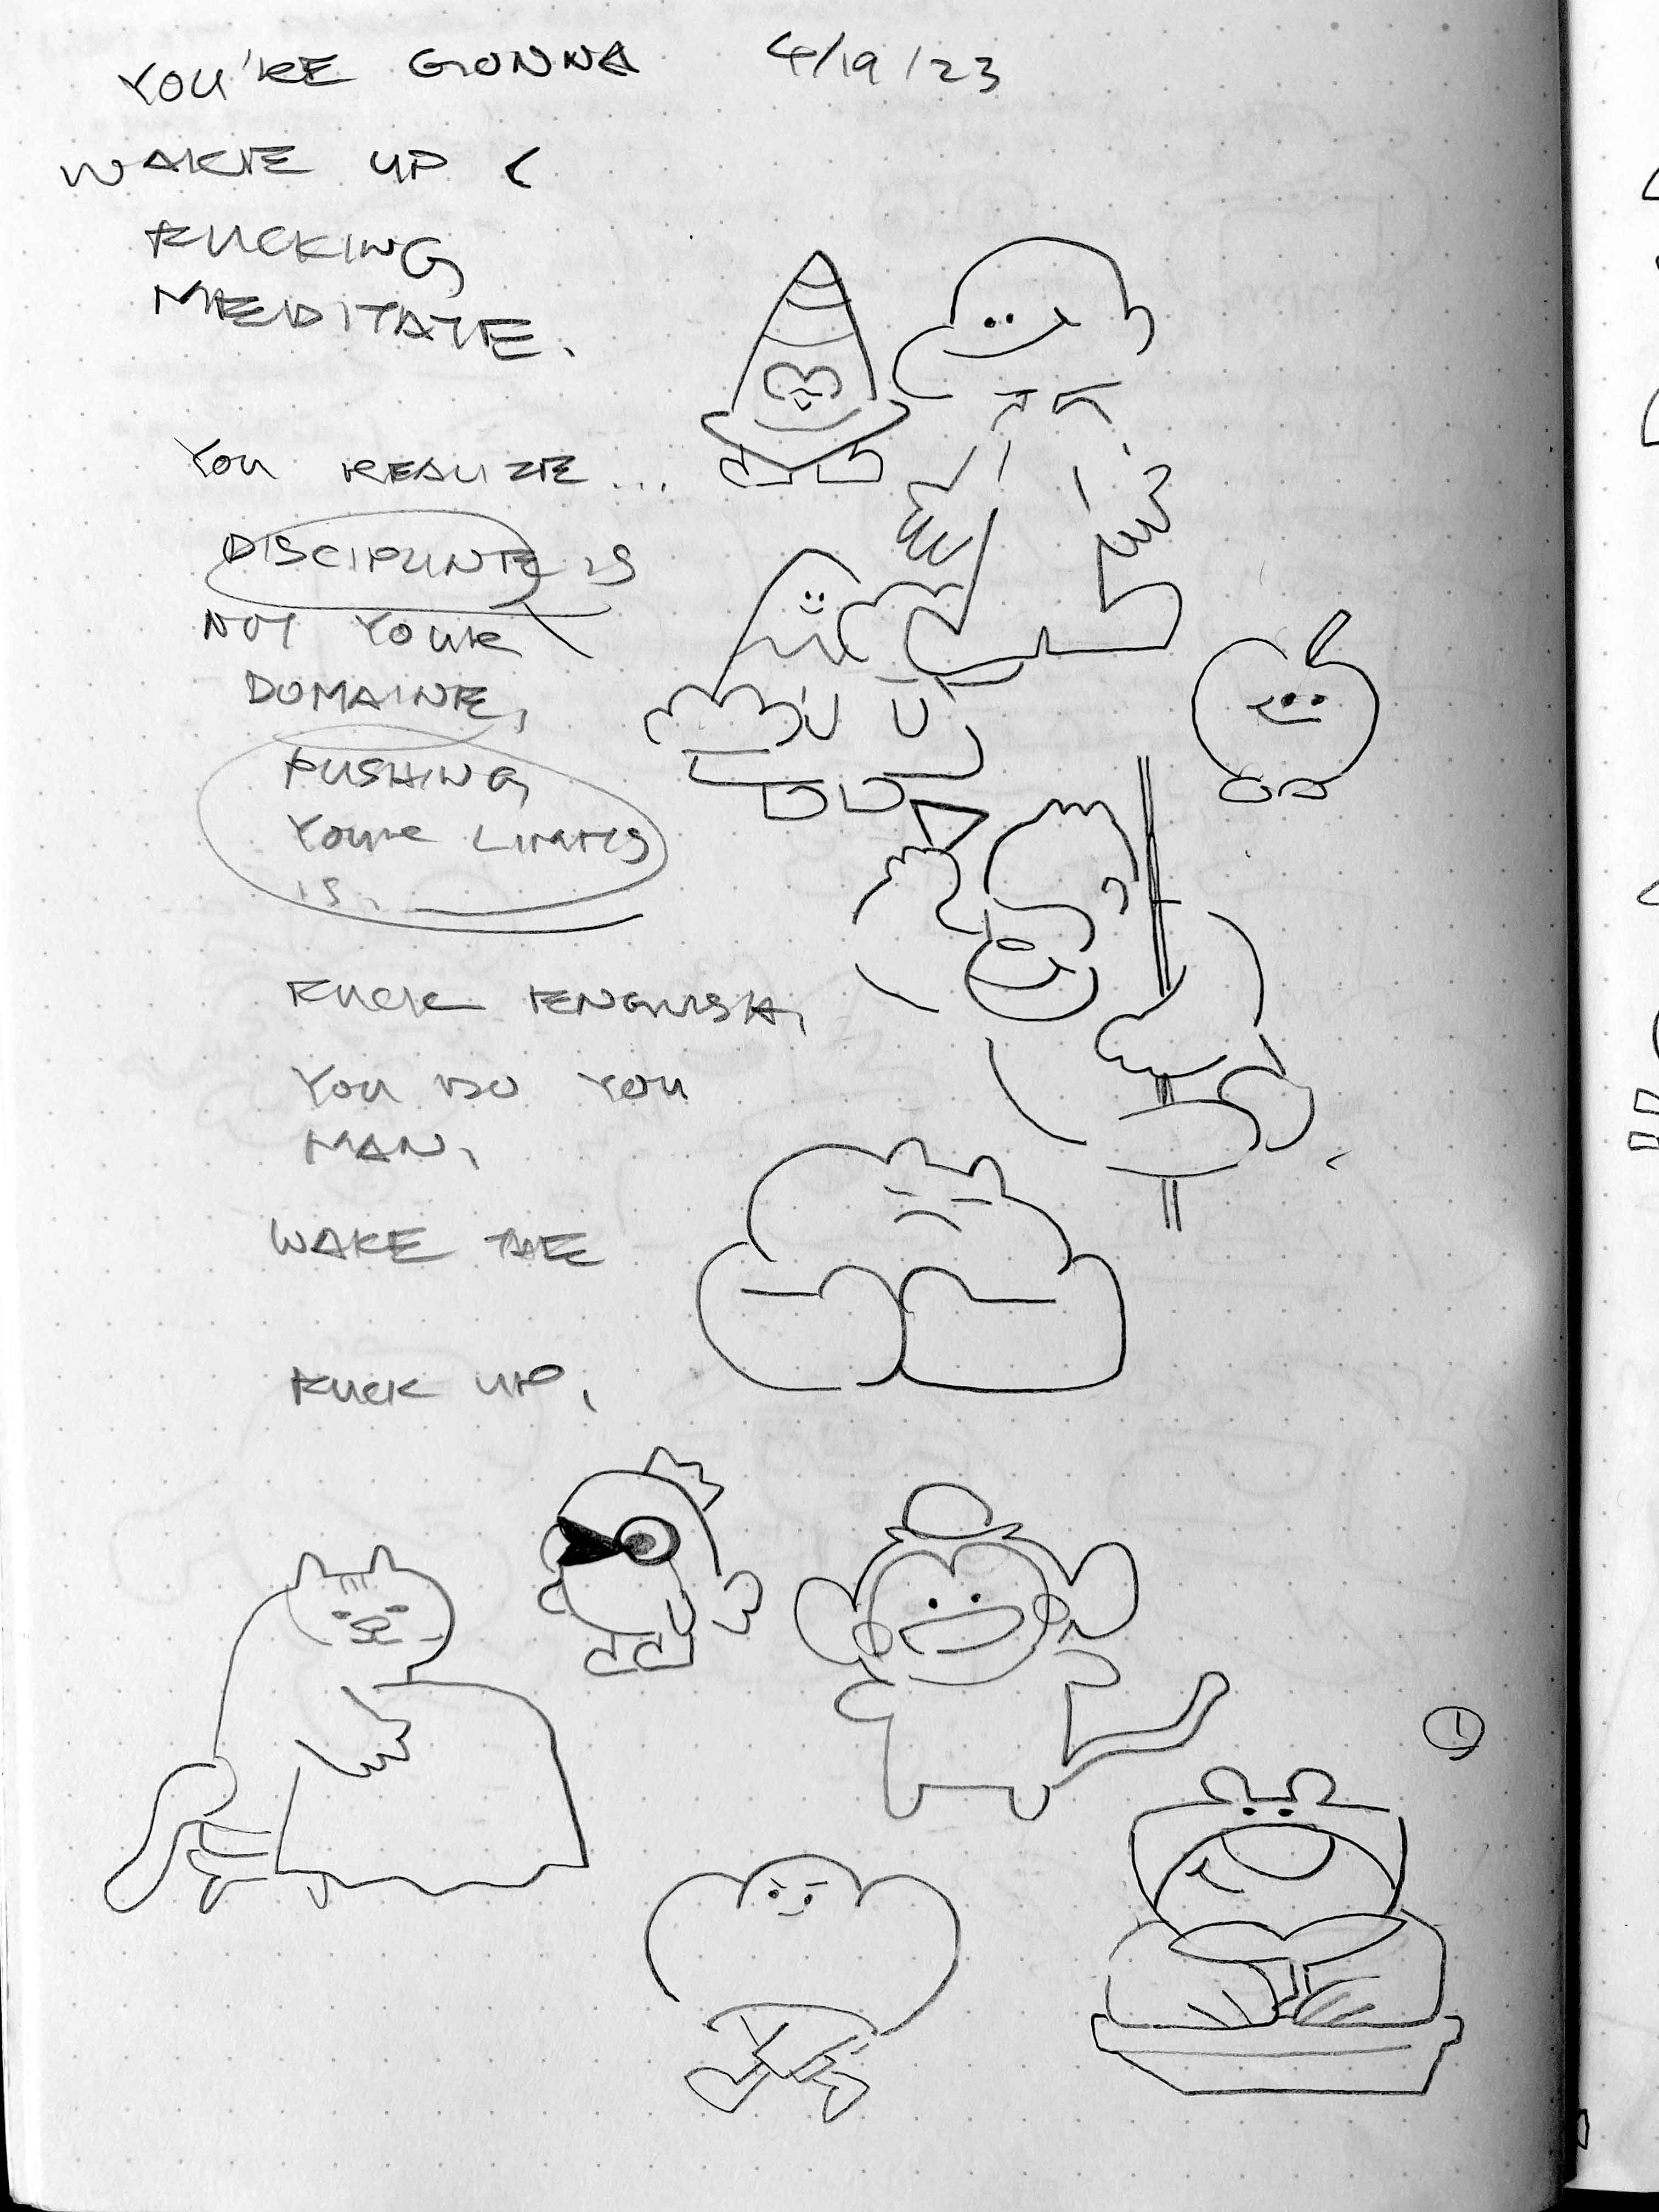 YOU'RE GONNA 4/19/23
WAKE UP &
FUCKING
MEDITATE.
YOU REALIZE...
DISCIPLINE IS
NOT YOUR
DOMAINE,
PUSHING
YOUR LIMITS
IS.
FUCK ENGLISH,
YOU DO YOU
MAN,
WAKE THE
FUCK UP,
1